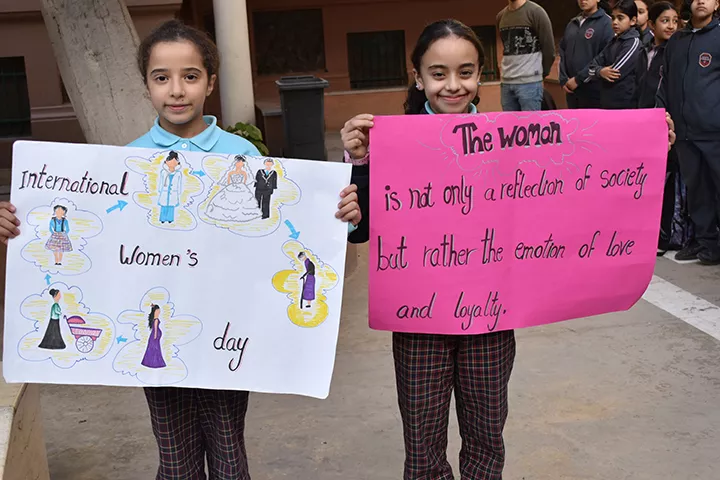 International
Women's
day
The woman
is not only a reflection of society
but rather the emotion of love
and loyalty.